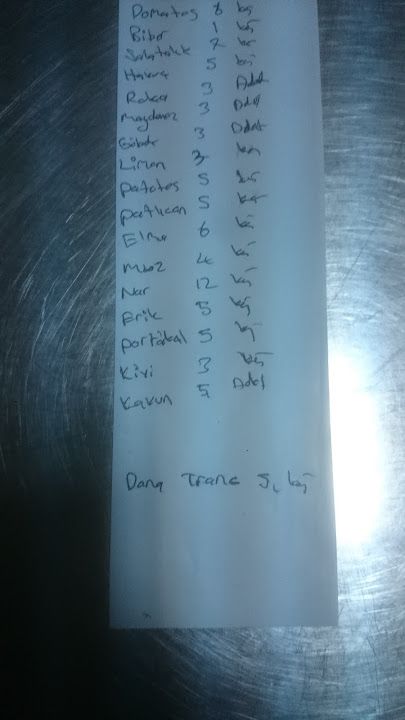 Domates 8 kg
Biber 1 kg
Salatalık 2 kg
Havuç 5 kg
Roka 3 Adet
Maydanoz 3 Adet
Göbek 3 Adet
Limon 3 kg
patates 5 kg
patlıcan 5 kg
Elma 6 kg
Muz 4 kg
Nar 12 kg
Erik 5 kg
portakal 5 kg
Kivi 3 kg
Kavun 5 Adet
Dana 5 kg